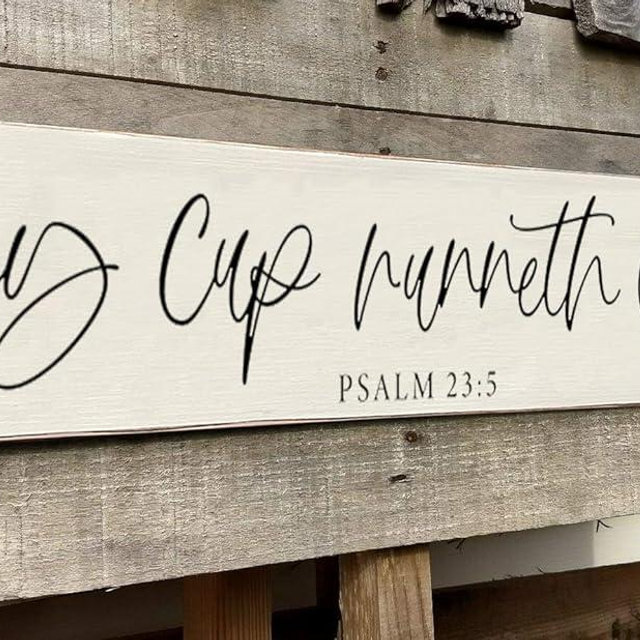 y Cup runneth
PSALM 23:5